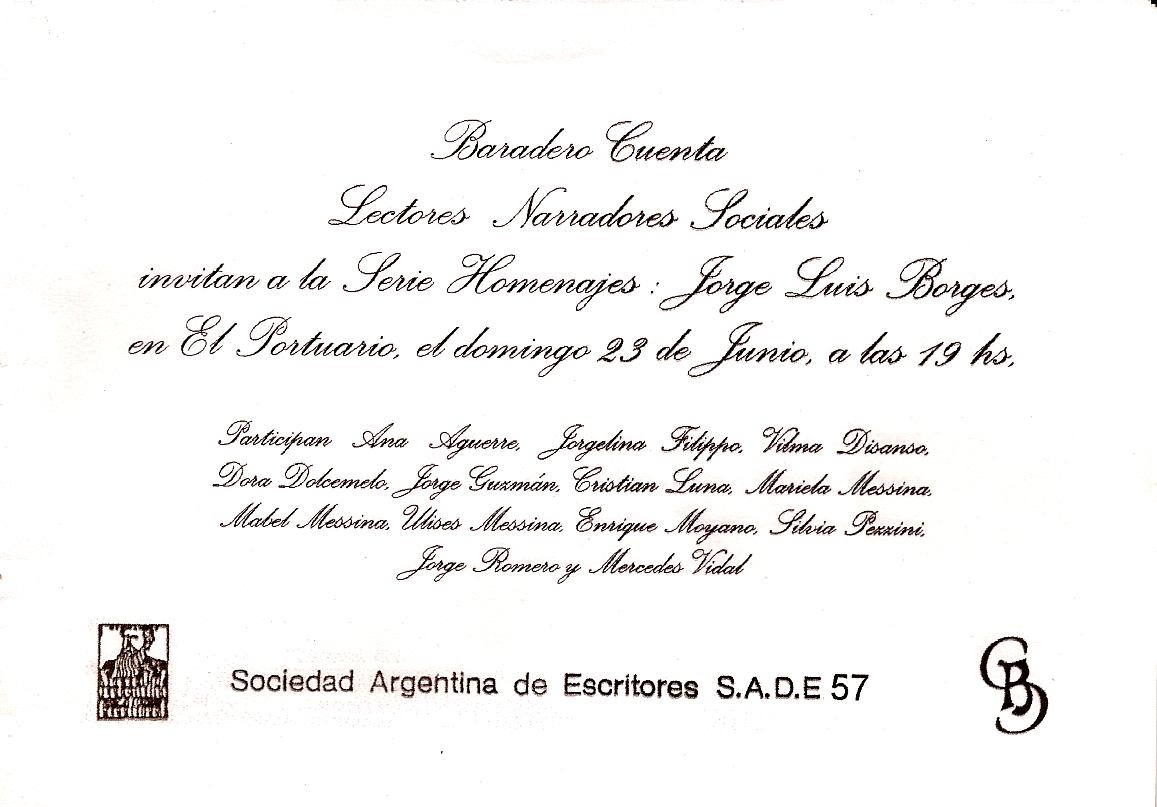 Baradero Cuenta
Lectores Narradores Sociales
invitan a la Serie Homenajes : Jorge Luis Borges,
en El Portuario, el domingo 23 de Junio, a las 19 hs,
Participan Ana Aguerre, Jorgelina Filippo, Vilma Disanso,
Dora Dolcemelo, Jorge Guzmán, Cristian Luna, Mariela Messina,
Mabel Messina, Ulises Messina, Enrique Moyano, Silvia Pezzini,
Jorge Romero y Mercedes Vidal
Sociedad Argentina de Escritores S.A.D.E 57